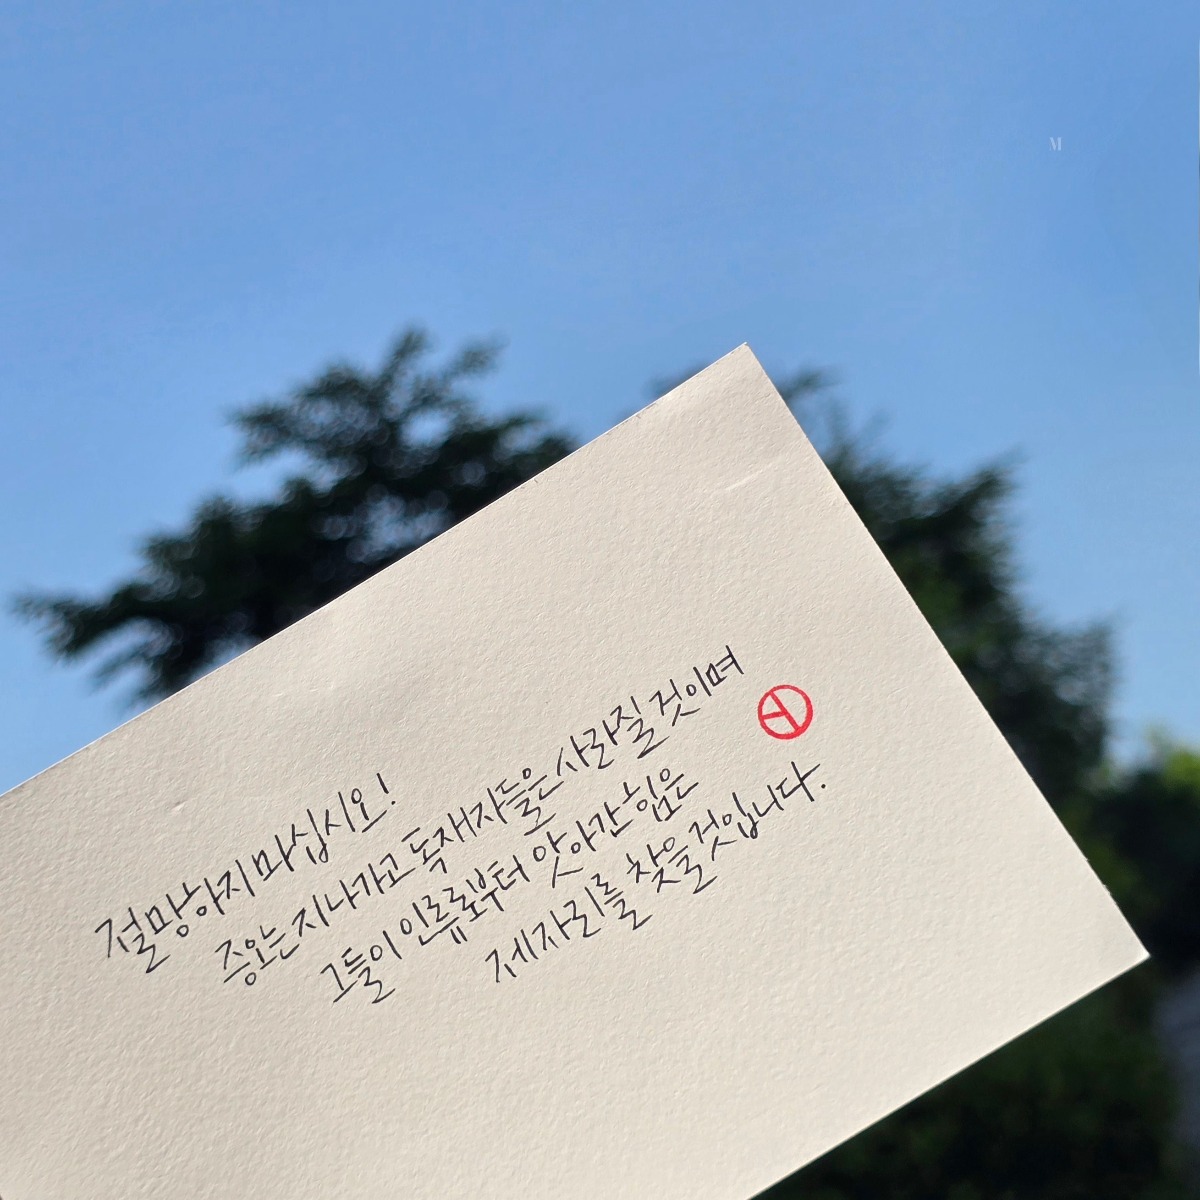 M
절망하지 마십시오!
증오는 지나가고 독재자들은 사라질 것이며
그들이 인류로부터 앗아간 힘은
제자리를 찾을것입니다.